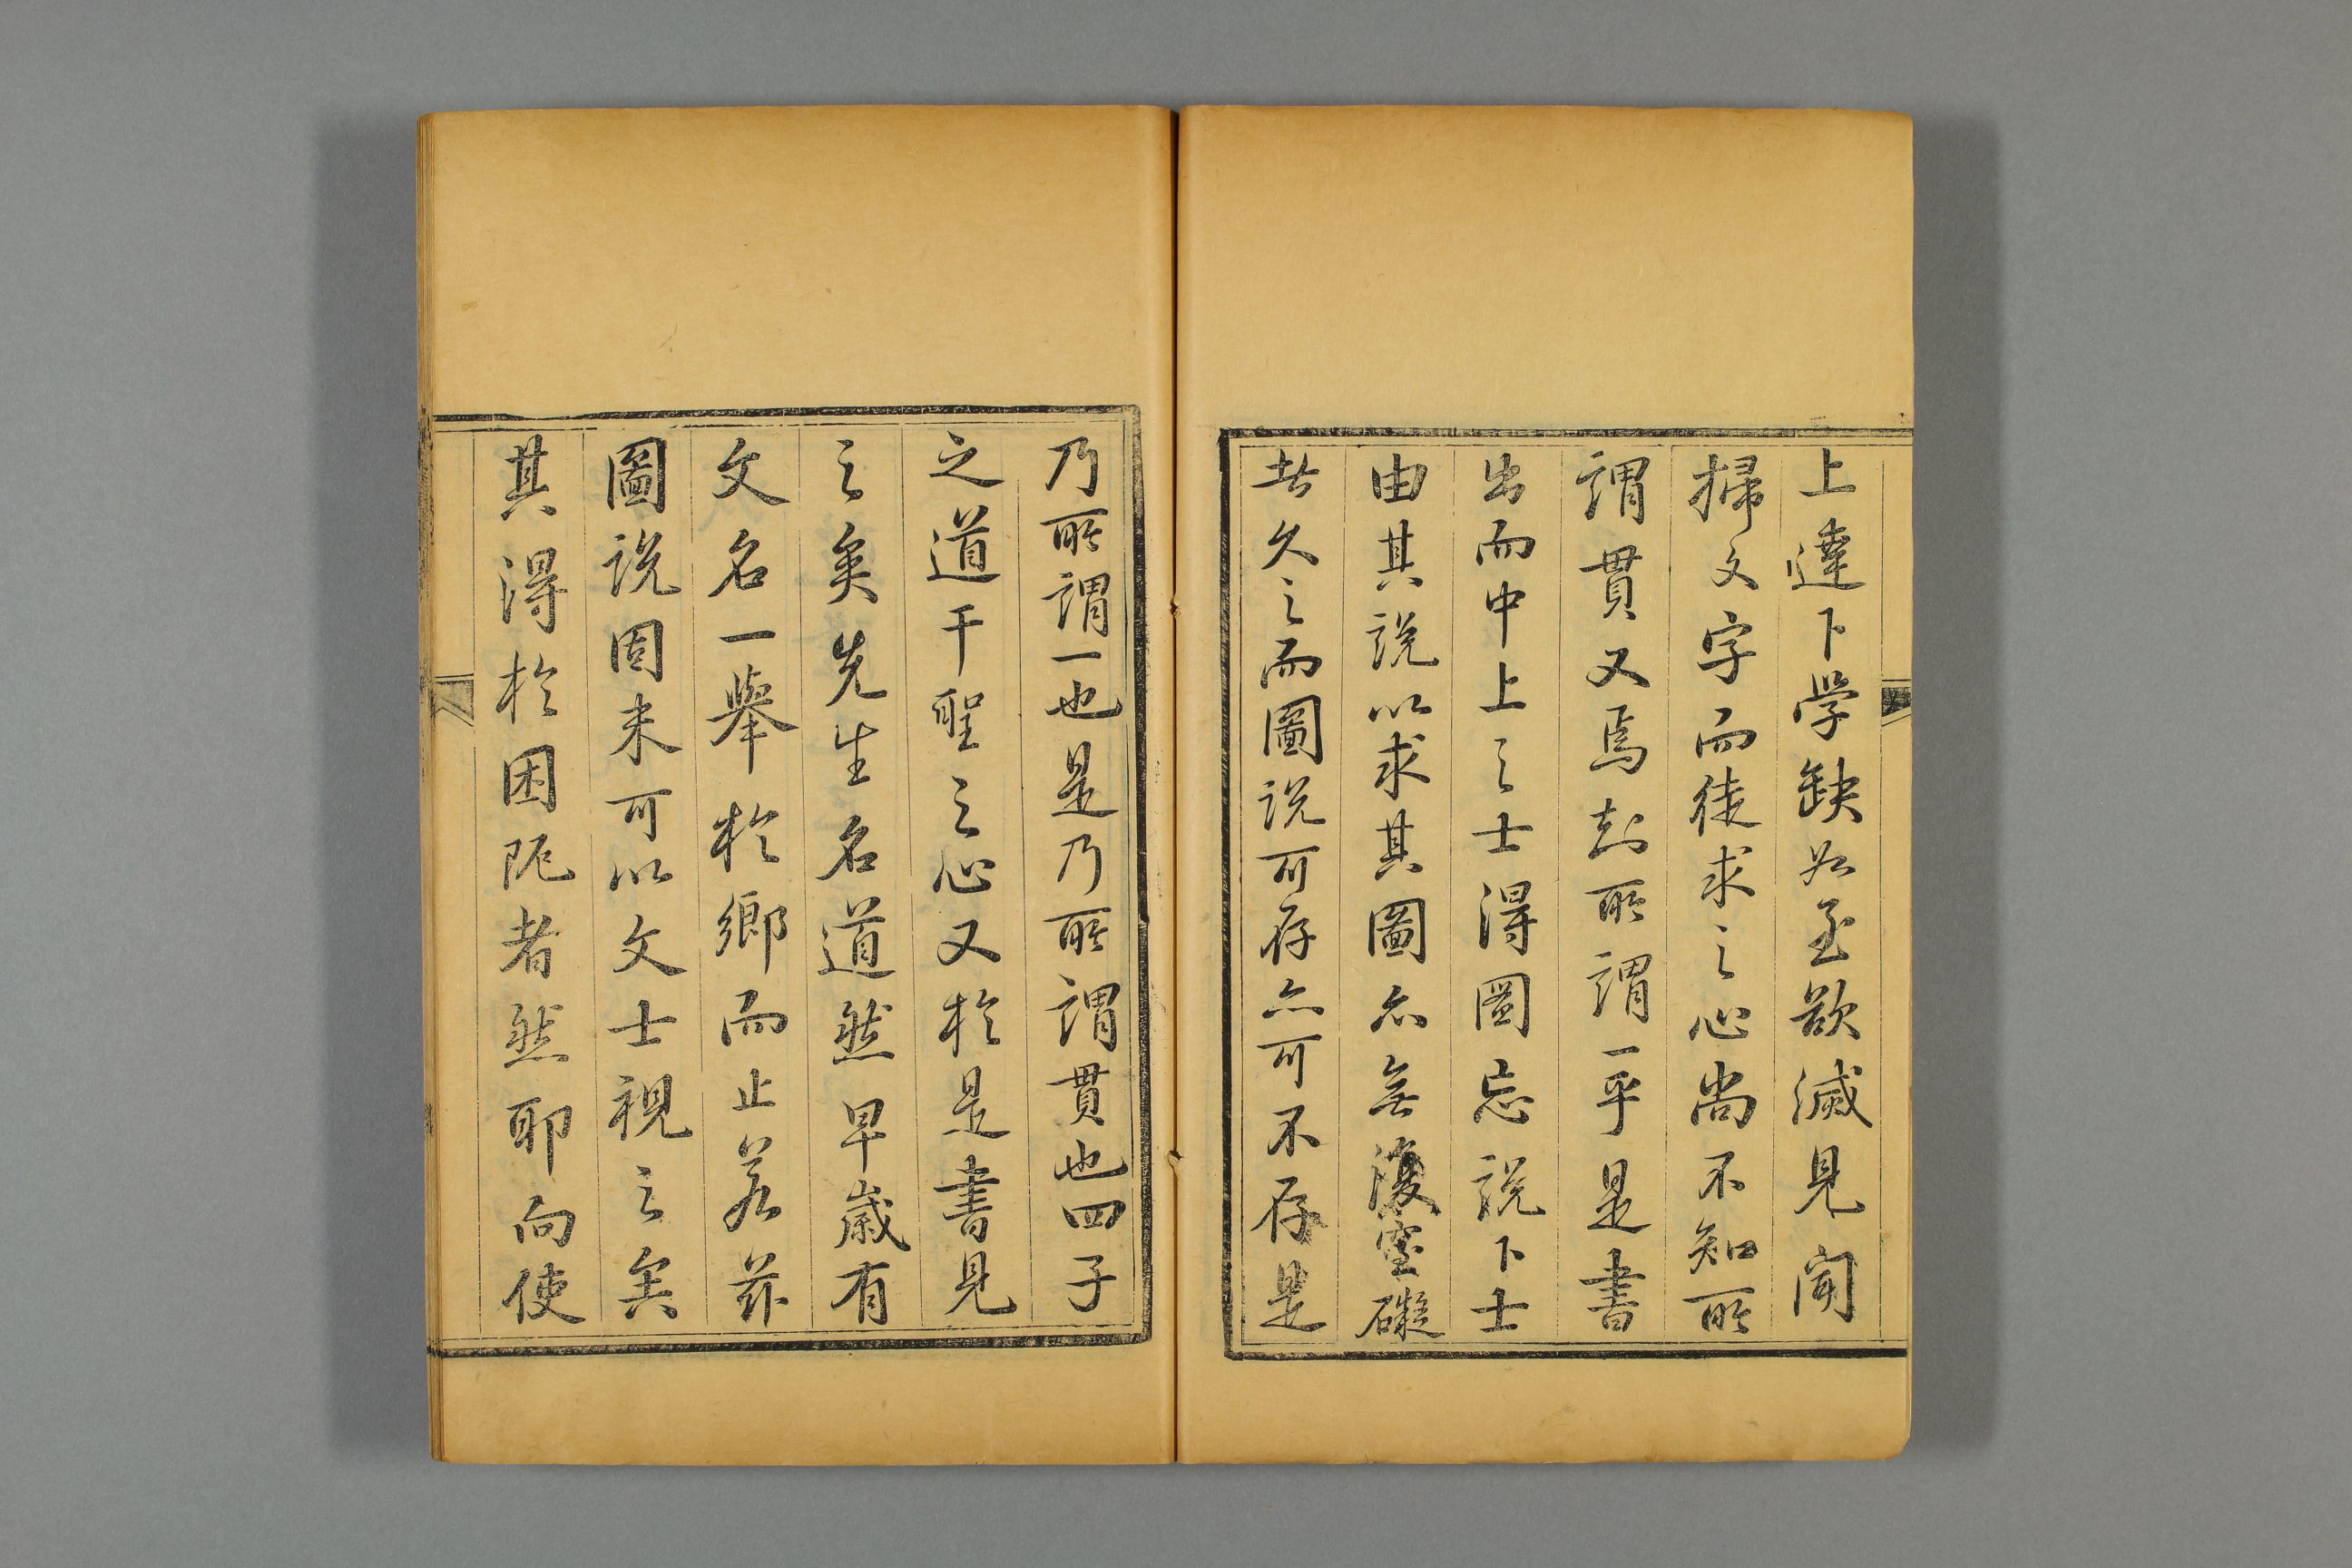 上達下学缺如至欲滅見聞
掃文字而徒求之心尚不知所
謂貫又焉知所謂一乎是書
出而中上之士得圖忘説下士
由其説以求其圖亦無復窒礙
者久之而圖説可存亦可不存是
乃所謂一也是乃所謂貫也四子
之道千聖之心又於是書見
之矣先生名道然早歳有
文名一舉於鄉而止若茲
圖説固未可以文士視之矣
其得於困阨者然耶向使